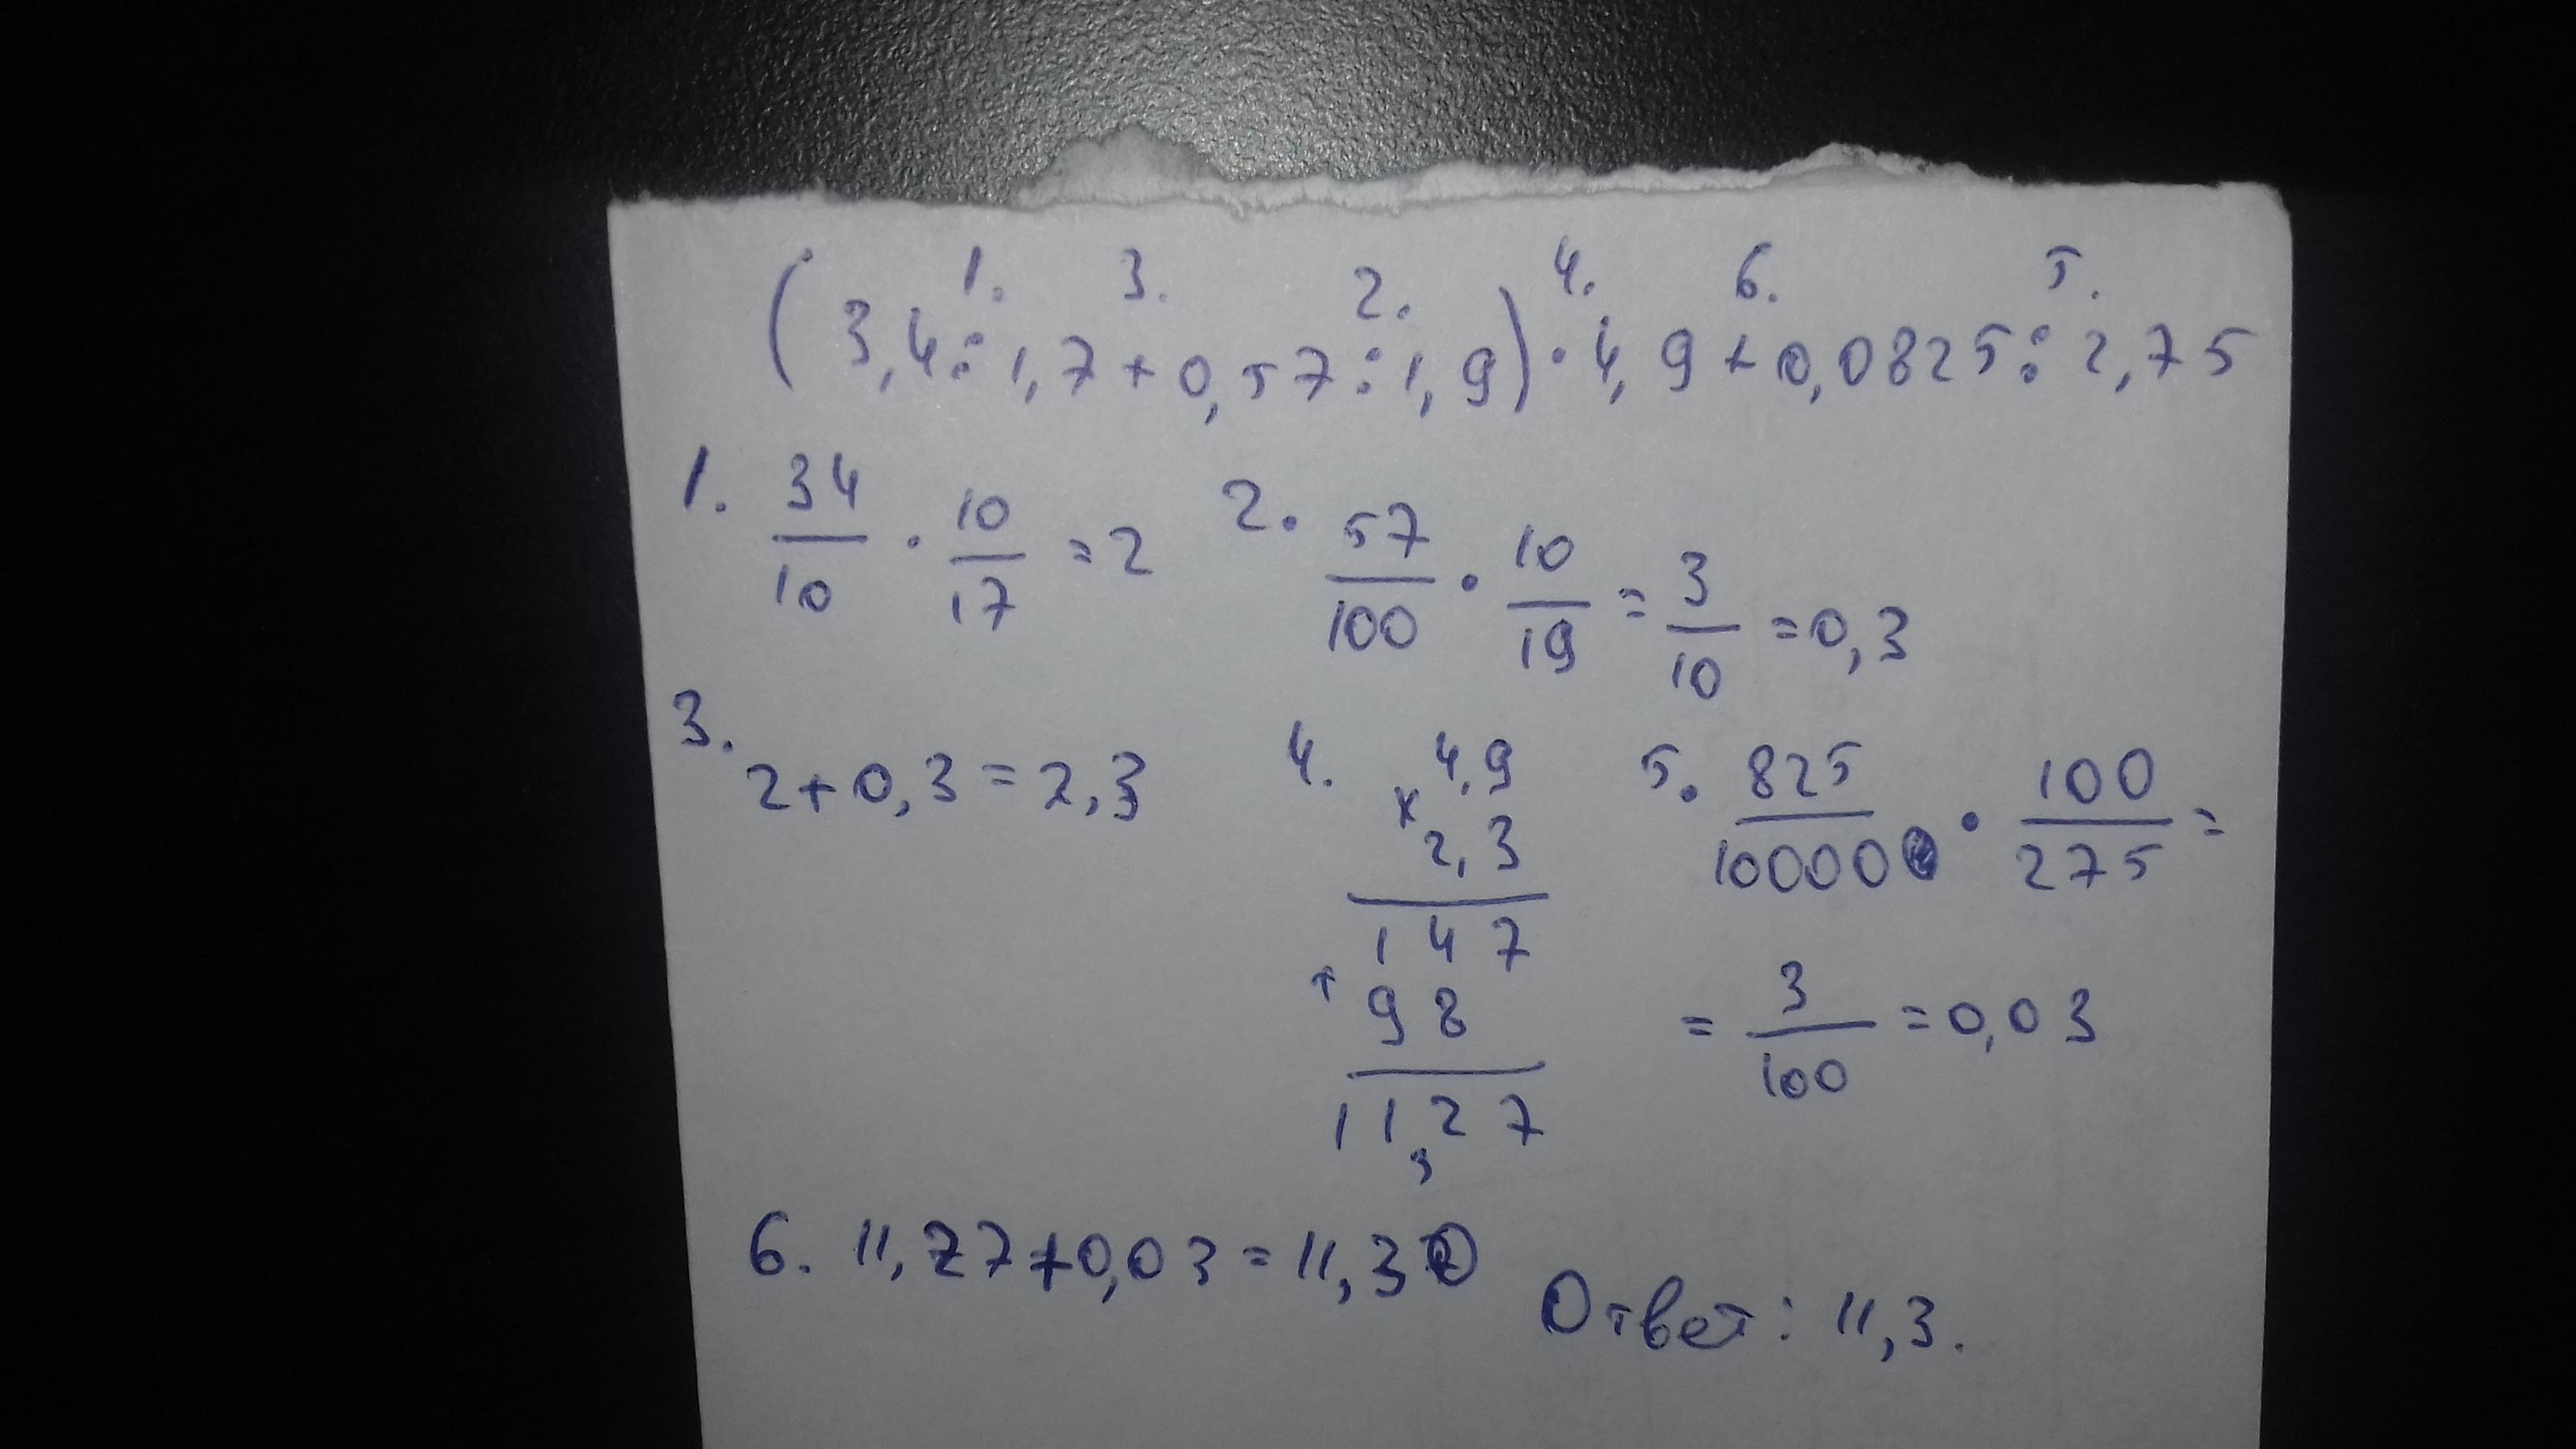 1. 3. 2. 4. 6. 5.
(3,4:1,7+0,57:1,9)·4,9+0,0825:2,75
1. 34/10 · 10/17 =2 2. 57/100 · 10/19 = 3/10 =0,3
3. 2+0,3=2,3
4. 4,9
x 2,3
147
+ 98
11,27
5. 825/10000 · 100/275 =
= 3/100 =0,03
6. 11,27+0,03=11,3
Ответ: 11,3.